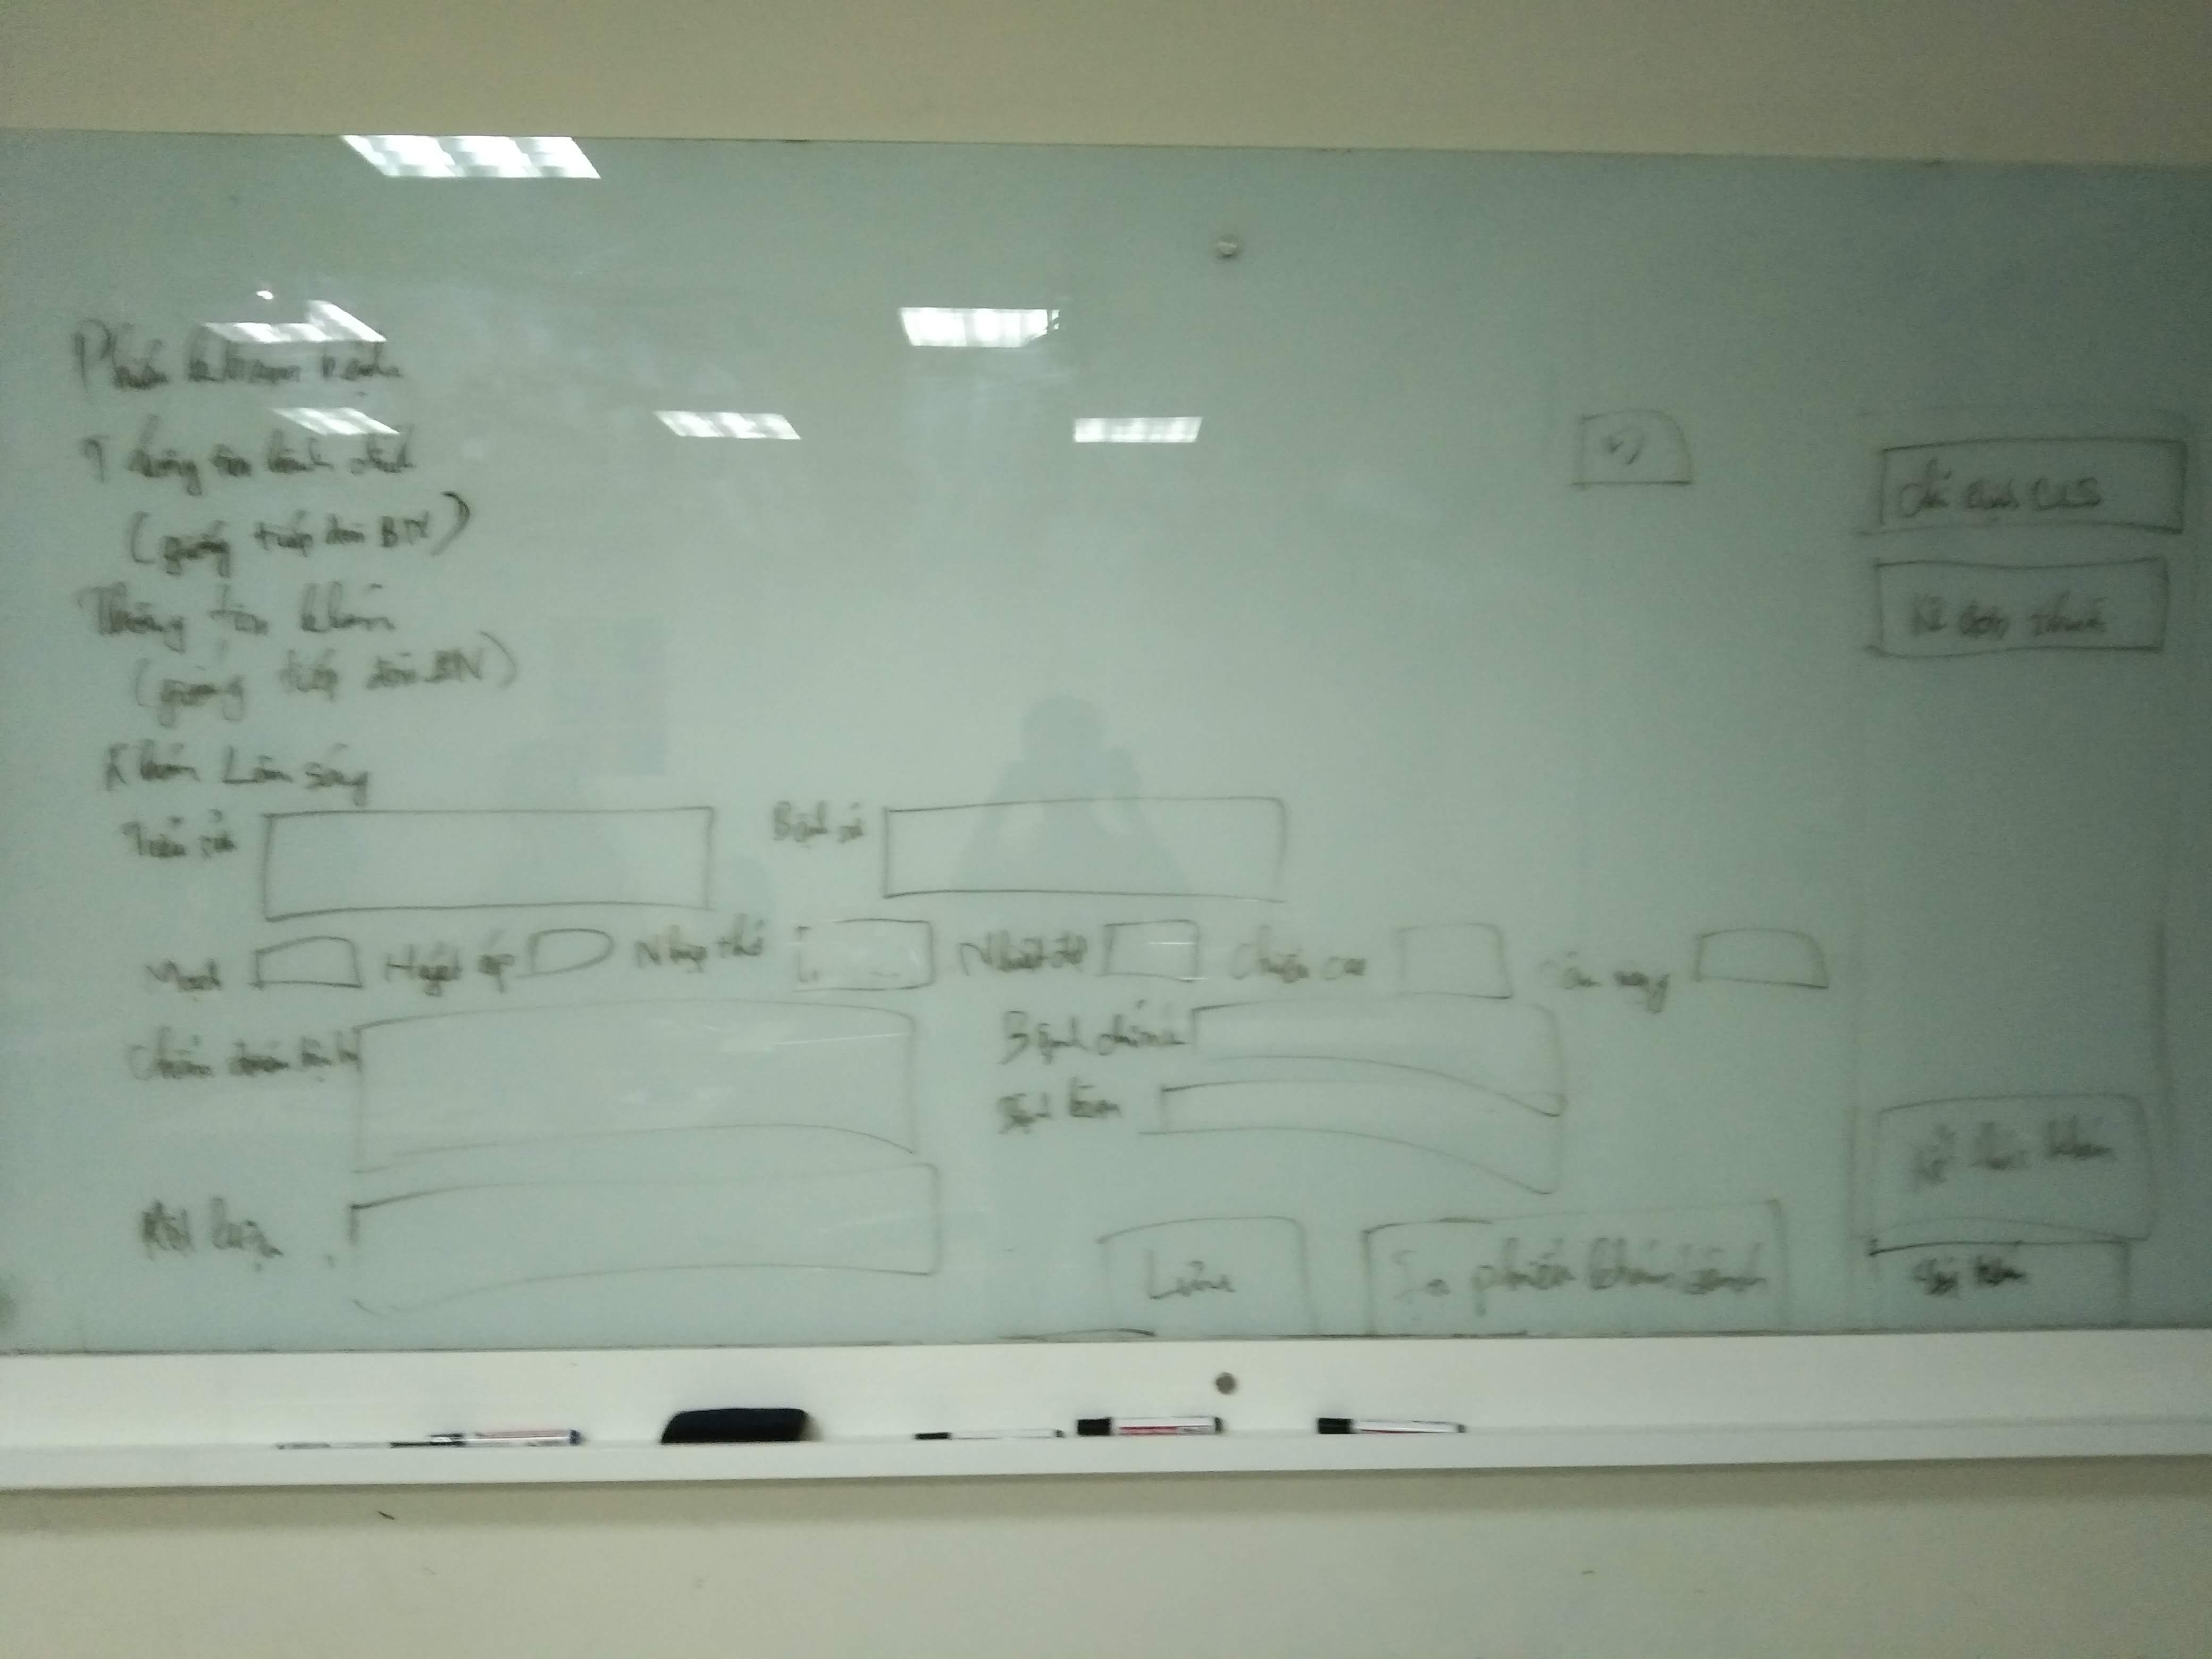 Phiếu khám bệnh
Thông tin hành chính
(giống tiếp đón BN)
Thông tin khám
(giống tiếp đón BN)
Khám Lâm sàng
Tiền sử
Bệnh sử
Mạch Huyết áp Nhịp thở Nhiệt độ Chiều cao Cân nặng
Chẩn đoán
Bệnh chính
Bệnh kèm
Kết luận
In phiếu khám bệnh
Chỉ định CLS
Kê đơn thuốc
Kết thúc khám